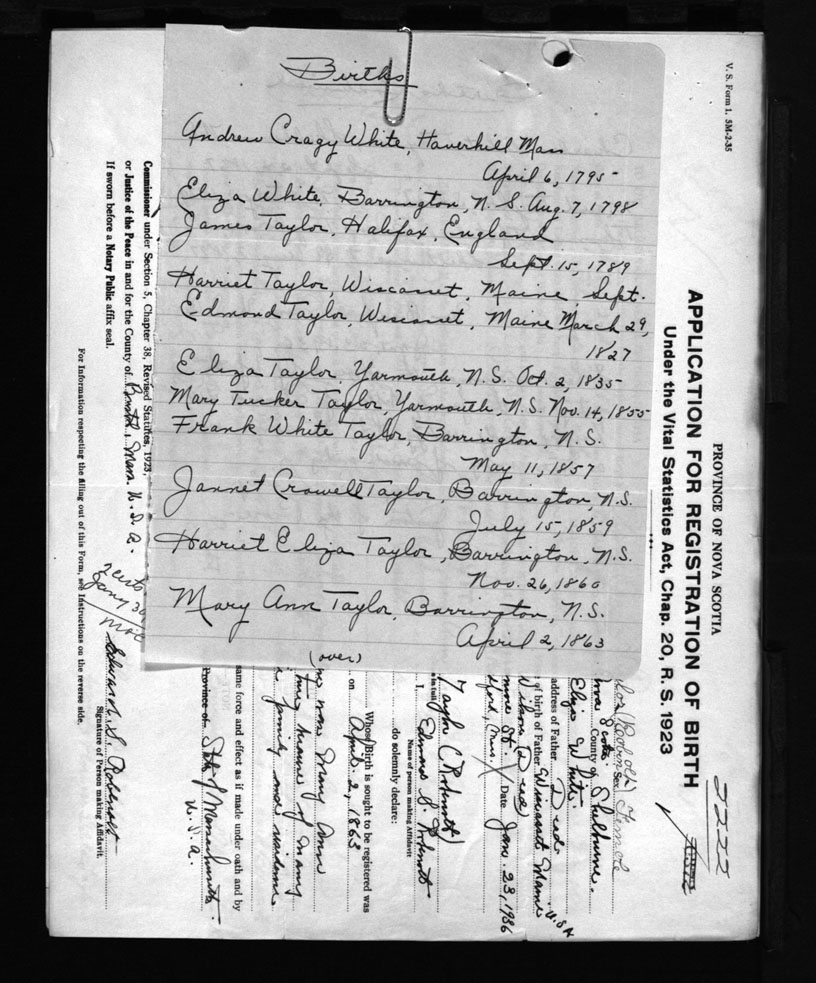 Births
Andrew Cragy White, Haverhill Mass
April 6, 1795
Eliza White, Barrington, N.S. Aug. 7, 1798
James Taylor, Halifax, England
Sept. 15, 1789
Harriet Taylor, Wiscasset, Maine Sept.
Edmond Taylor, Wiscasset, Maine March 29,
1827
Eliza Taylor, Yarmouth, N.S. Oct. 2, 1835
Mary Tucker Taylor, Yarmouth, N.S. Nov. 14, 1855
Frank White Taylor, Barrington, N.S.
May 11, 1857
Jannet Crowell Taylor, Barrington, N.S.
July 15, 1859
Harriet Eliza Taylor, Barrington, N.S.
Nov. 26, 1860
Mary Ann Taylor, Barrington, N.S.
April 2, 1863
(over)
V. S. Form 1. 5M-2-35
PROVINCE OF NOVA SCOTIA
APPLICATION FOR REGISTRATION OF BIRTH
Under the Vital Statistics Act, Chap. 20, R. S. 1923
Sex Female
County of Shelburne.
Eliza White.
address of Father Dead
of birth of Father Wiscasset Maine U.S.A.
Dead
Date Jan. 23, 1936
Taylor
in full
I,
Name of person making Affidavit
do solemnly declare:
Whose Birth is sought to be registered was
on April 2, 1863
Mary Ann
same force and effect as if made under oath and by
Province of State of Massachusetts.
U.S.A.
Signature of Person making Affidavit.
Commissioner under Section 5, Chapter 38, Revised Statutes, 1923,
or Justice of the Peace in and for the County of Bristol, Mass. U.S.A.
If sworn before a Notary Public affix seal.
For Information respecting the filling out of this Form, see Instructions on the reverse side.